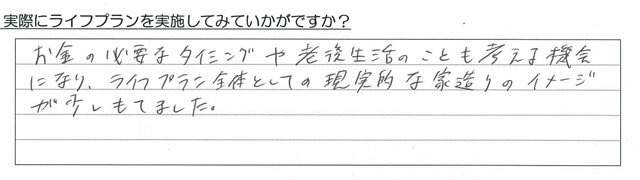 実際にライフプランを実施してみていかがですか？
お金の必要なタイミングや老後生活のことも考える機会
になり、ライフプラン全体としての現実的な家造りのイメージ
が少しもてました。